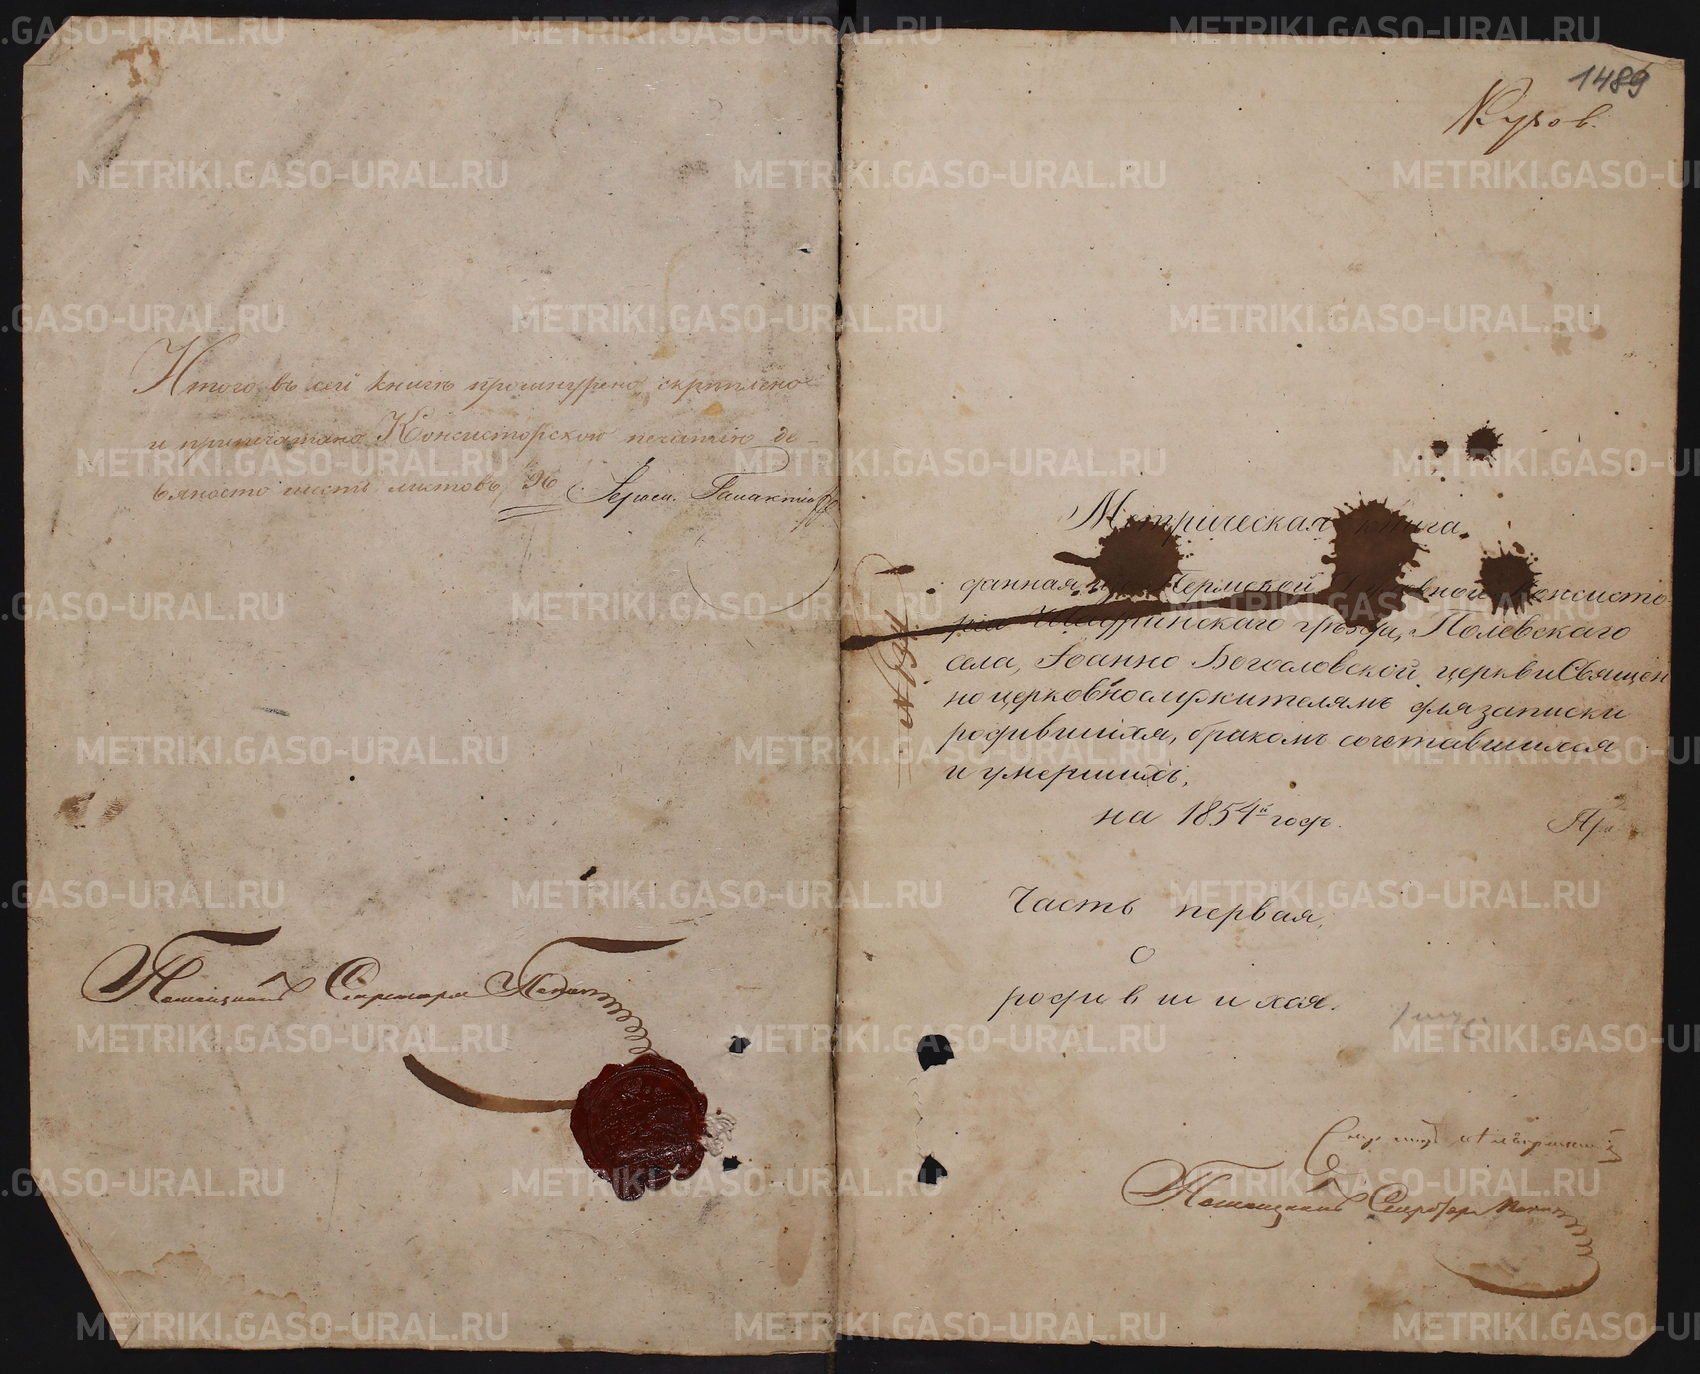 Итого въ сей книгѣ прошнурено, скрѣплено
и припечатано Консисторскою печатію де-
вяносто шесть листовъ, 96
Помощникъ Секретаря
1489
Метрическая книга,
данная изъ Пермской Духовной Консисто-
ріи Шадринскаго уѣзда, Полевскаго
села, Іоанно Богословской церкви Священ
но церковнослужителямъ для записки
родившихся, бракомъ сочетавшихся
и умершихъ,
на 1854й годъ.
Часть первая,
о
родившихся.
Помощникъ Секретаря
METRIKI.GASO-URAL.RU